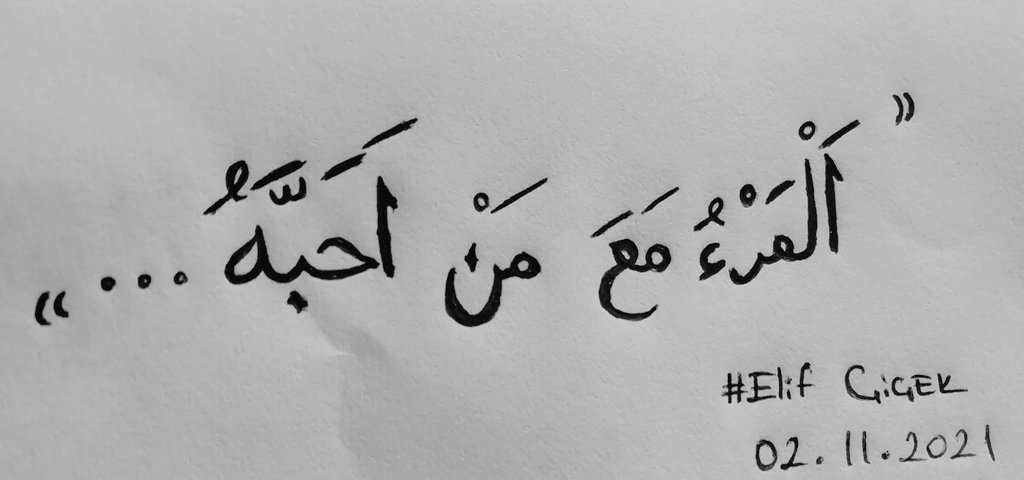 ”اَلْمَرْءُ مَعَ مَنْ اَحَبَّهُ...“
#Elif ÇiÇEK
02.11.2021